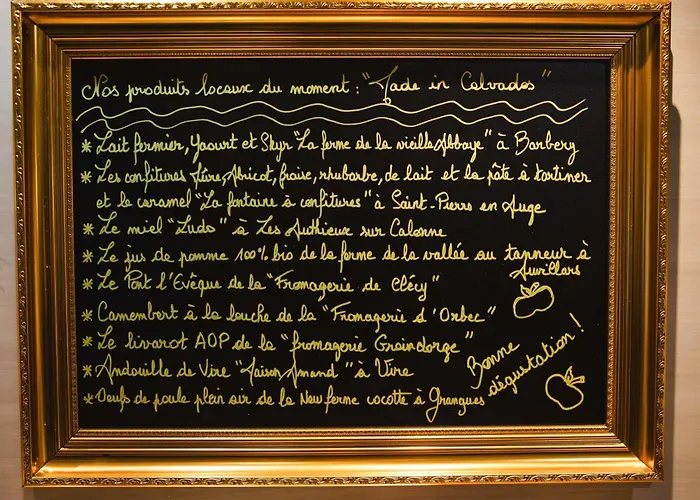 Nos produits locaux du moment : "Made in Calvados"
* Lait fermier, Yaourt et Skyr "La ferme de la vieille Abbaye" à Barbery
* Les confitures Mûre, Abricot, fraise, rhubarbe, de lait et la pâte à tartiner
et le caramel "La fontaine à confitures" à Saint-Pierre en Auge
* Le miel "Ludo" à Les Authieux sur Calonne
* Le jus de pomme 100% bio de la ferme de la vallée au tanneur à
Auvillars
* Le Pont l'Evêque de la "Fromagerie de Cléry"
* Camembert à la louche de la "Fromagerie d'Orbec"
* Le livarot AOP de la "fromagerie Graindorge"
* Andouille de Vire "Maison Amand" à Vire
* Oeufs de poule plein air de la New ferme cocotte à Grangues
Bonne
dégustation !